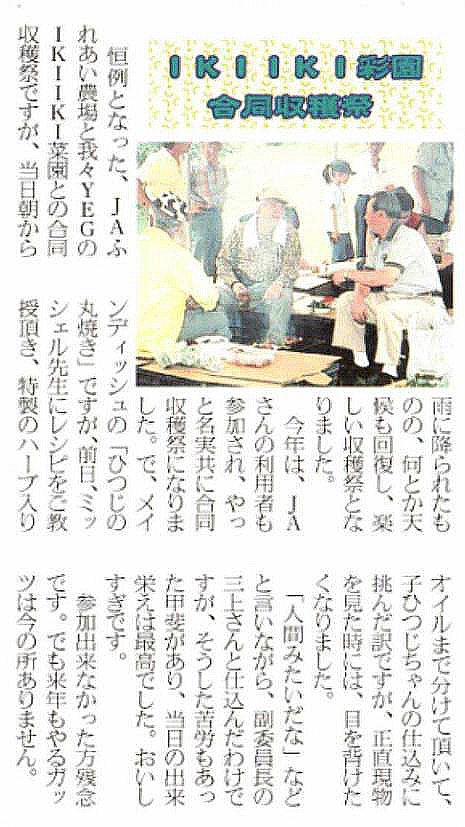 ＩＫＩＩＫＩ彩園
合同収穫祭
恒例となった、ＪＡふ
れあい農場と我々ＹＥＧの
ＩＫＩＩＫＩ菜園との合同
収穫祭ですが、当日朝から
雨に降られたも
のの、何とか天
候も回復し、楽
しい収穫祭とな
りました。
今年は、ＪＡ
さんの利用者も
参加され、やっ
と名実共に合同
収穫祭になりま
した。で、メイ
ンディッシュの「ひつじの
丸焼き」ですが、前日、ミッ
シェル先生にレシピをご教
授頂き、特製のハーブ入り
オイルまで分けて頂いて、
子ひつじちゃんの仕込みに
挑んだ訳ですが、正直現物
を見た時には、目を背けた
くなりました。
「人間みたいだな」など
と言いながら、副委員長の
三上さんと仕込んだわけで
すが、そうした苦労もあっ
た甲斐があり、当日の出来
栄えは最高でした。おいし
すぎです。
参加出来なかった方残念
です。でも来年もやるガッ
ツは今の所ありません。